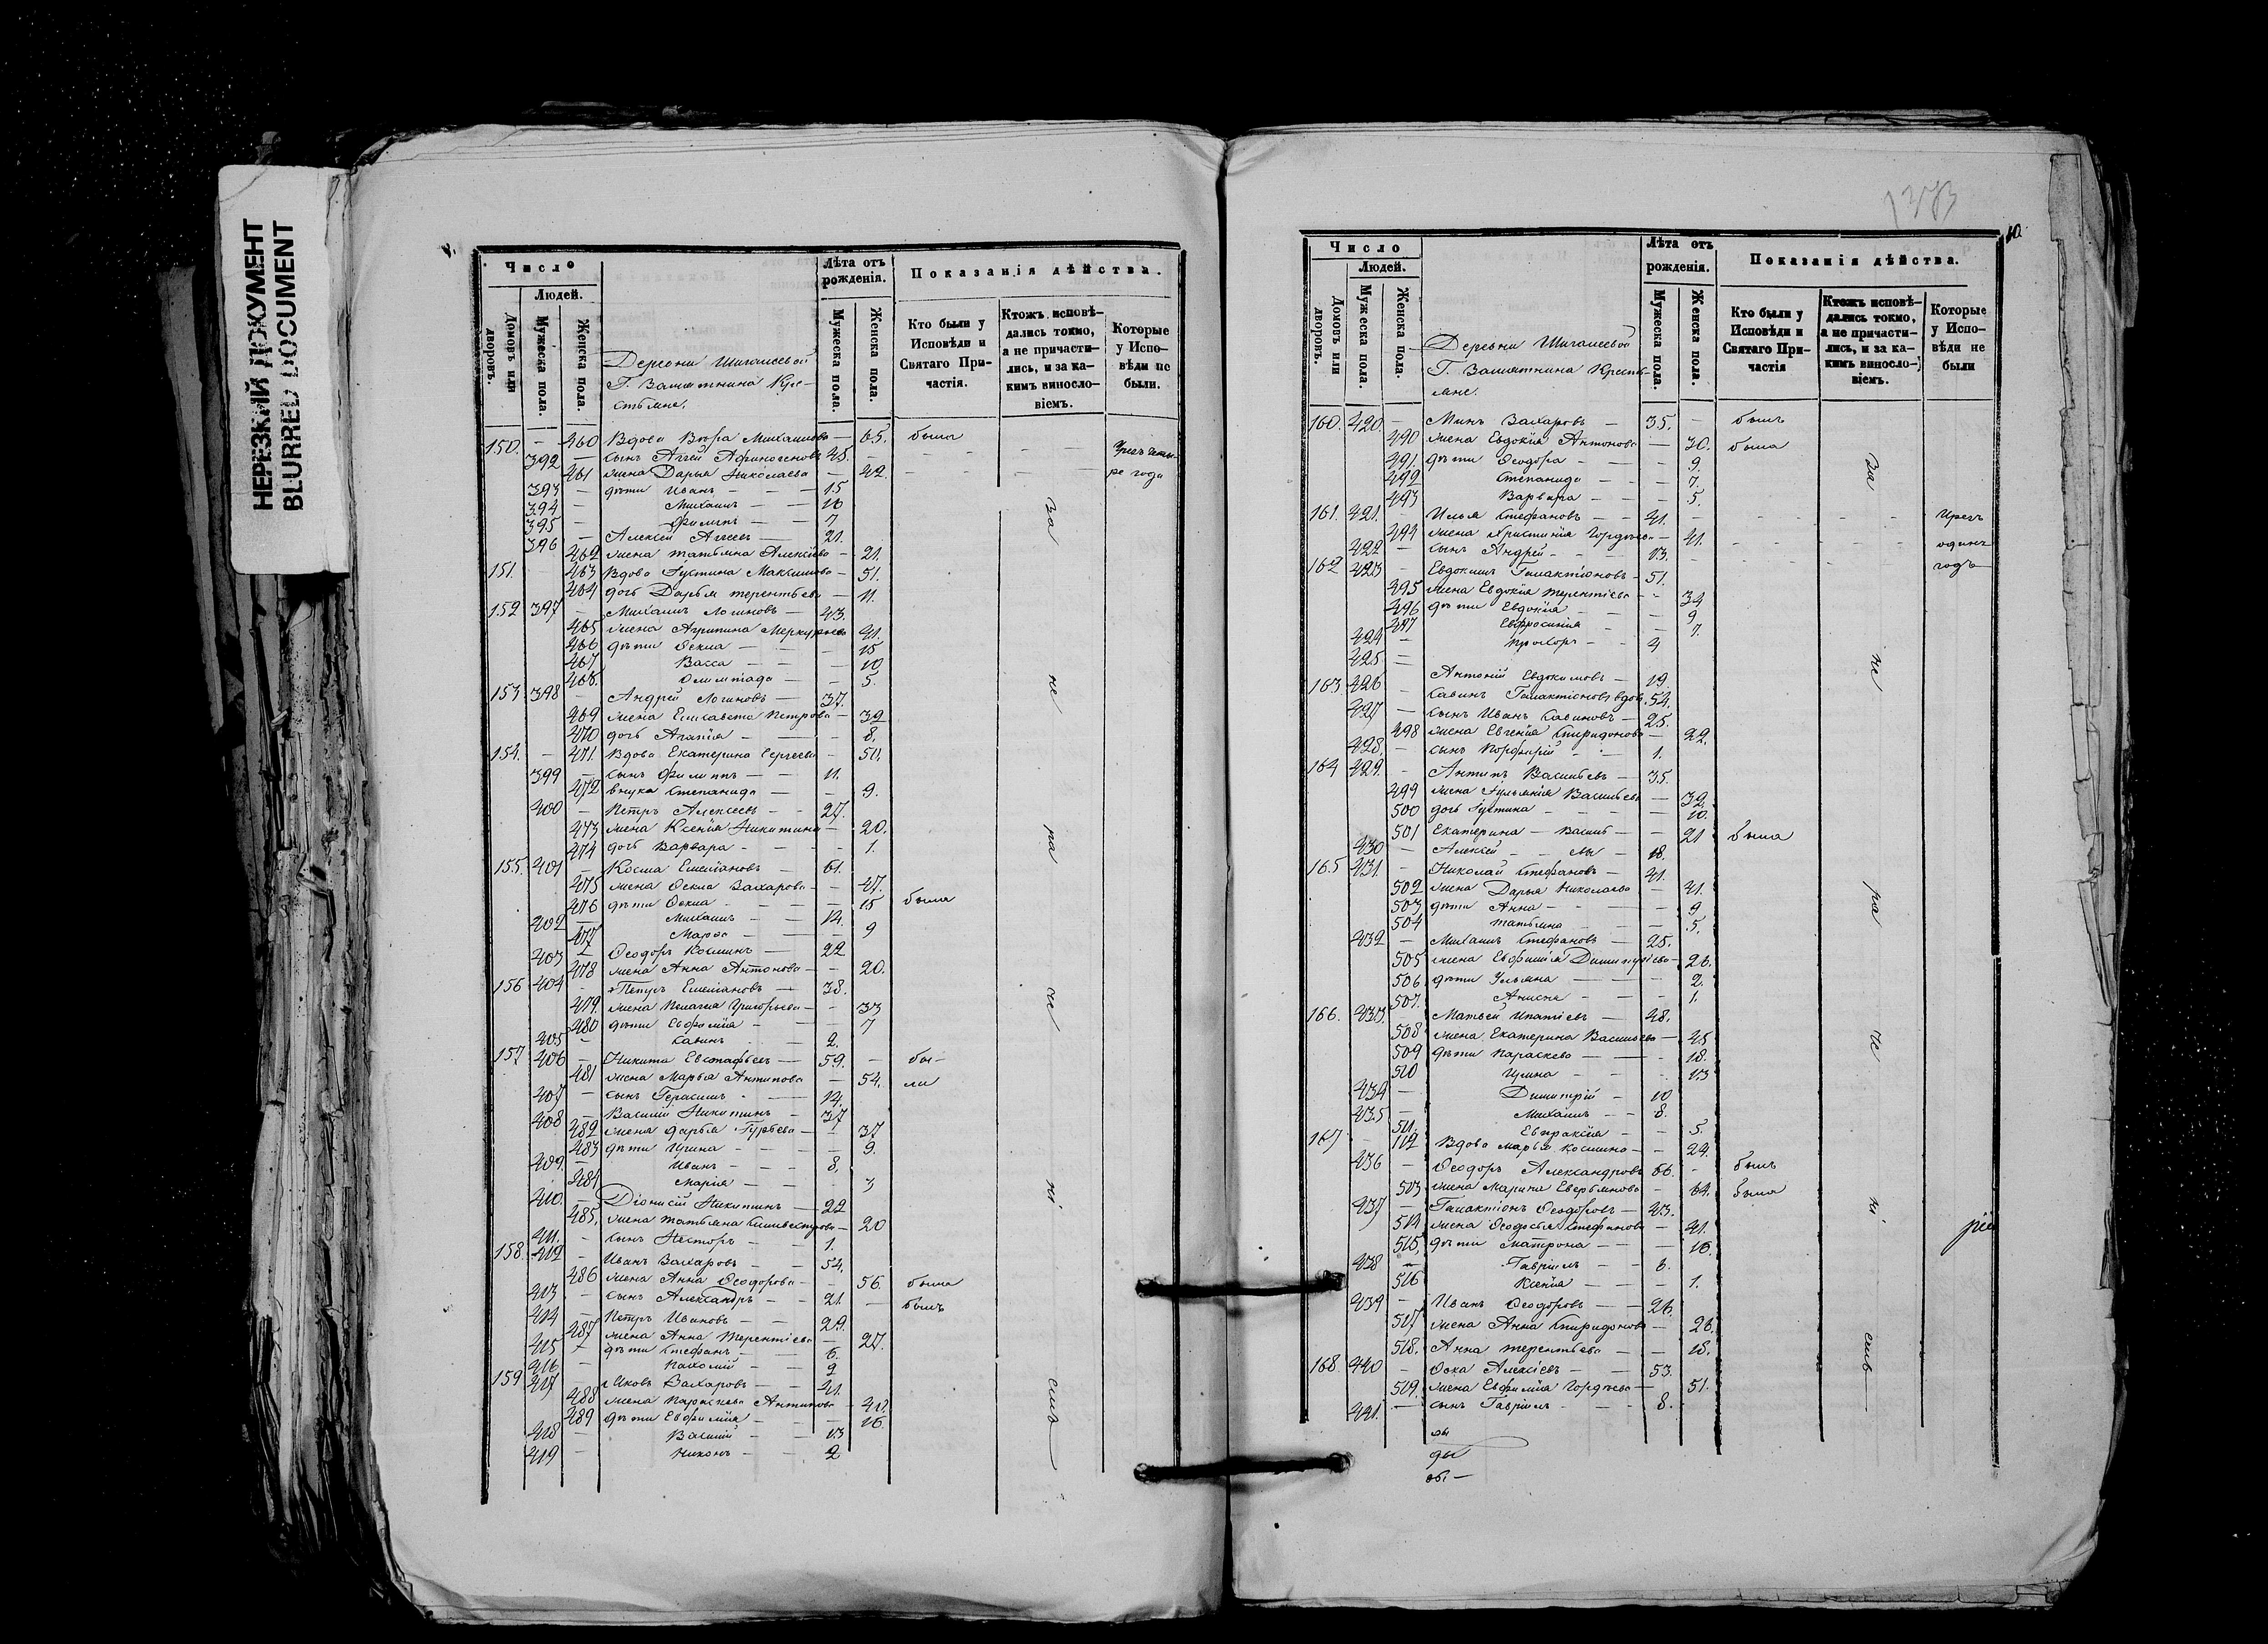 НЕРЕЗКИЙ ДОКУМЕНТ
BLURRED DOCUMENT
Число
Людей.
Домовъ или дворовъ.
Мужеска пола.
Женска пола.
Деревни Шигалеевой
Г. Замятнина Кре-
стьяне.
Лѣта отъ рожденія.
Мужеска пола.
Женска пола.
Показанія дѣйства.
Кто были у Исповѣди и Святаго При-частія.
Ктожъ исповѣ-дались токмо, а не причасти-лись, и за ка-кимъ винослo-віемъ.
Которые у Испо-вѣди не были.
150. — 460 Вдова Вѣра Михайлова — 65. была
392 — сынъ Аггей Афиногеновъ 45. —
461 жена Дарья Николаева — 42. ре года
393 — дѣти Иванъ — 15
394 — Михаилъ — 10
395 — Филипъ — 7
396 — Алексѣй Аггеевъ — 21.
462 жена Татьяна Алексѣева — 21.
151. 463 Вдова Іустина Максимова — 51.
464 дочь Дарья Терентьева — 11.
152 397 — Михаилъ Логиновъ — 43.
465 жена Агрипина Меркурьева 41.
466 дѣти Ѳекла — 15
467 Васса — 10
468. Олимпіада — 5.
153 398 — Андрей Логиновъ — 37.
469 жена Елисавета Петрова — 32
470 дочь Агапія — 8.
154. — 471. Вдова Екатерина Сергеева — 50.
399 — сынъ Филиппъ — 11.
472 внука Степанида — 9.
400 — Петръ Алексѣевъ — 27.
473 жена Ксенія Никитина — 20.
474 дочь Варвара — 1.
155. 401 — Косма Емеліановъ — 61.
475 жена Ѳекла Захарова — 47.
476 дѣти Ѳекла — 15 была
402 — Михаилъ — 14.
477 Марѳа — 9
403 — Ѳеодоръ Косминъ — 22
478 жена Анна Антонова — 20.
156 404 — Петръ Емеліановъ — 38.
479. жена Пелагія Григорьева — 33
480 дѣти Евфимія — 7
405 — Савинъ 2.
157 406 — Никита Евстафьевъ — 59. — бы-
481 жена Марья Антипова — 54. ли
407 — сынъ Герасимъ — 14.
408 — Василій Никитинъ — 37
482 жена Дарья Гурьева — 37
483 дѣти Ирина — 9.
409. — Иванъ — 8.
484 Марія — 3
410. — Діонисій Никитинъ — 22
485. жена Татьяна Сильвестрова — 20
411. — сынъ Несторъ — 1.
158. 412 — Иванъ Захаровъ — 54.
486 жена Анна Ѳеодорова — 56. была
413 — сынъ Александръ — 21. — былъ
414 — Петръ Ивановъ — 29.
487 жена Анна Терентіева — 27.
415 — дѣти Стефанъ — 6.
416 — Пахомій — 2
159 417 — Іяковъ Захаровъ — 41.
488 жена Параскева Антипова — 40.
489 дѣти Евфимія — 16.
418 — Василій — 13
419 — Никонъ — 2
за не ра че ні емъ
1373
10.
Число
Людей.
Домовъ или дворовъ.
Мужеска пола.
Женска пола.
Деревни Шигалеевой
Г. Замятнина Кресть-
яне.
Лѣта отъ рожденія.
Мужеска пола.
Женска пола.
Показанія дѣйства.
Кто были у Исповѣди и Святаго При-частія
Ктожъ исповѣ-дались токмо, а не причасти-лись, и за ка-кимъ винослo-віемъ.
Которые у Испо-вѣди не были
160. 420. — Минъ Захаровъ — 35. — былъ
490 жена Евдокія Антонова — 30. была
491. дѣти Ѳеодора — 9.
492 Степанида — 7.
493 Варвара — 5.
161. 421. Илья Стефановъ — 41. — чрезъ
494 жена Христинія Гордѣева — 41. одинъ
422 — сынъ Андрей — 13. годъ
162 423 — Евдокимъ Галактіоновъ — 51.
495 жена Евдокія Терентіева — 34
496 дѣти Евдокія — 9
497 Евфросинія — 7.
424 — Прохоръ — 4
425 —
163. 426 Антоній Евдокимовъ — 19
— Савинъ Галактіоновъ вдовъ 54.
427 — сынъ Иванъ Савиновъ — 25.
498 жена Евгенія Спиридонова — 22.
428. — сынъ Порфирій — 1.
164 429. — Антипъ Васильевъ — 35.
499 жена Іуліянія Васильева — 32.
500 дочь Іустина — 10.
501 Екатерина — Василь — 21 была
430 — Алексѣй — вы — 18.
165 431. — Николай Стефановъ — 41.
502 жена Дарья Николаева — 41.
503 дѣти Анна — 9
504 Татьяна — 5.
432 — Михаилъ Стефановъ — 25.
505 жена Евфимія Димитріева — 26.
506 дѣти Ульяна — 2.
507. Анисія — 1.
166. 433. — Матвей Ипатіевъ — 48.
508 жена Екатерина Васильева — 45
509 дѣти Параскева — 18.
510 Ирина — 13
434 — Димитрій — 10
435 — Михаилъ — 8.
511. Евпраксія — 5.
167 — 112 Вдова Марья Космина — 24.
436 — Ѳеодоръ Александровъ 66. — былъ
503 жена Марина Еверьянова — 64. была
437 — Галактіонъ Ѳеодоровъ — 43.
514 жена Ѳеодосья Стефанова — 41.
515. дѣти Матрона — 16.
438 — Гавріилъ — 6.
516 Ксенія — 1.
439 — Иванъ Ѳеодоровъ — 26.
517 жена Анна Спиридонова — 26.
518. Анна Терентьева — 18.
168. 440 — Ѳока Алексѣевъ — 53.
519. жена Евфимія Гордѣева — 51.
441. — сынъ Гавріилъ — 8.
за не ра че ні емъ